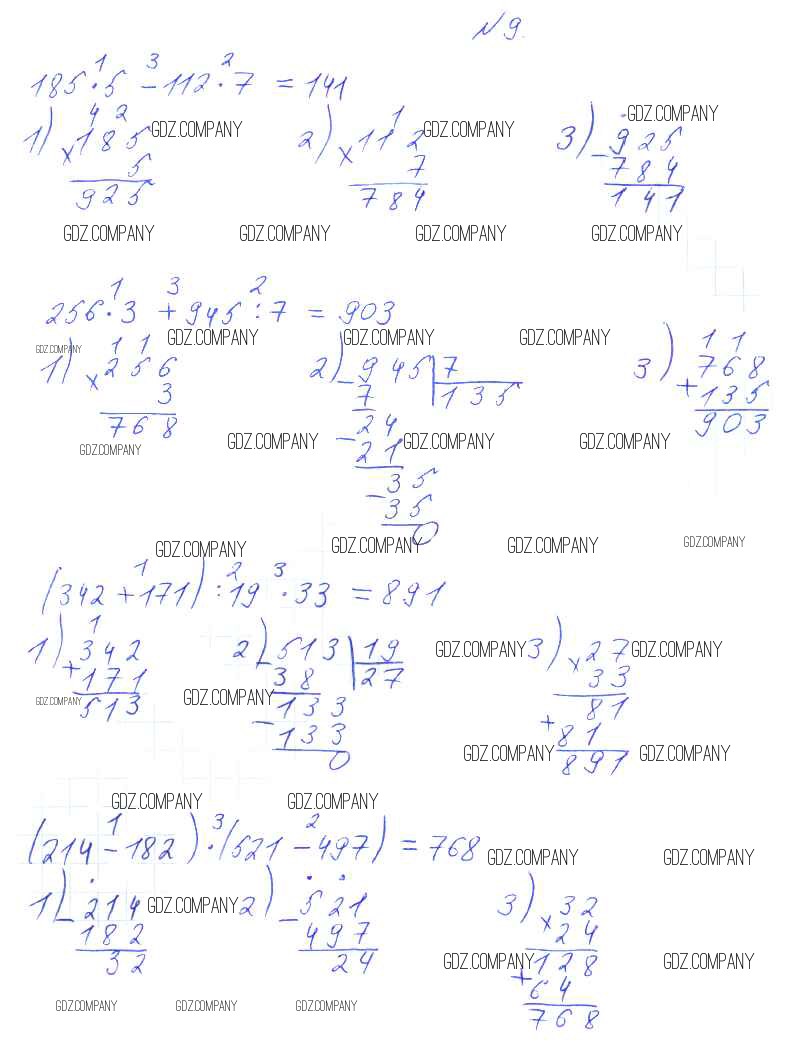 №9.
1 3 2
185·5 − 112·7 = 141
4 2 1
1) ×185 GDZ.COMPANY 2) ×112 GDZ.COMPANY 3) −925 GDZ.COMPANY
5 7 784
925 784 141
GDZ.COMPANY GDZ.COMPANY GDZ.COMPANY GDZ.COMPANY
1 3 2
256·3 + 945:7 = 903
GDZ.COMPANY 1 1 GDZ.COMPANY GDZ.COMPANY GDZ.COMPANY 1 1
1) ×256 2) −945 7 3) +768
3 7 135 135
768 −24 903
GDZ.COMPANY GDZ.COMPANY 21 GDZ.COMPANY GDZ.COMPANY
−35
35
0
GDZ.COMPANY GDZ.COMPANY GDZ.COMPANY GDZ.COMPANY
1 2 3
(342 + 171) : 19 · 33 = 891
1
1) +342 2) −513 19 GDZ.COMPANY 3) ×27 GDZ.COMPANY
171 38 27 33
GDZ.COMPANY 513 GDZ.COMPANY −133 81
133 +81
0 GDZ.COMPANY 891 GDZ.COMPANY
GDZ.COMPANY GDZ.COMPANY
1 3 2
(214 − 182) · (521 − 497) = 768 GDZ.COMPANY GDZ.COMPANY
1) −214 GDZ.COMPANY 2) −521 3) ×32
182 497 24
32 24 GDZ.COMPANY 128 GDZ.COMPANY
GDZ.COMPANY GDZ.COMPANY GDZ.COMPANY +64
768